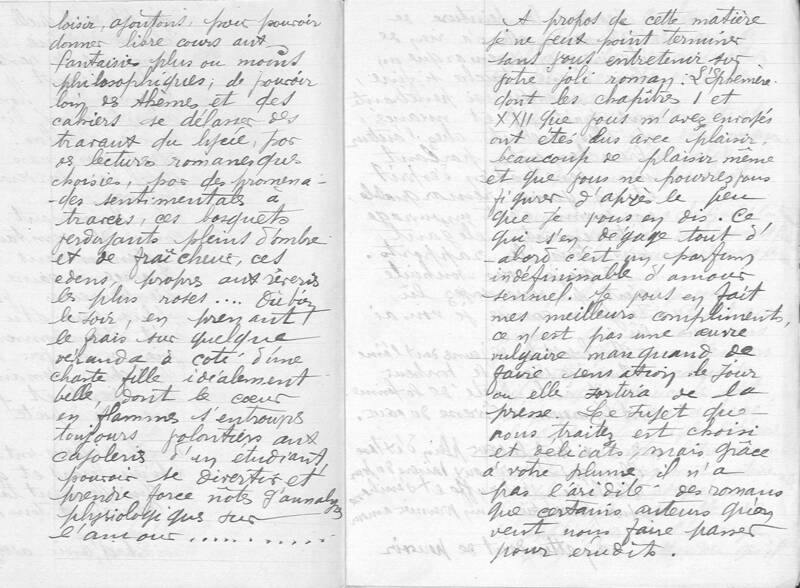 loisir, ajoutons, pour pouvoir
donner libre cours aux
fantaisies plus ou moins
philosophiques; de pouvoir
loin des thèmes et des
cahiers se délasser des
travaux du lycée, par
des lectures romanesques
choisies, par des promena-
des sentimentales à
travers, ces bosquets
verdoyants pleins d'ombre
et de fraîcheur, ces
edens propres aux rêveries
les plus roses.... Ou bien
le soir, en prenant
le frais sur quelque
véranda à coté d'une
chaste fille idéalement
belle, dont le cœur
en flammes s'entrouve
toujours volontiers aux
cajoleries d'un etudiant,
pouvoir se divertir et
prendre force notes d'annalyses
physiologiques sur
l'amour...........
A propos de cette matière
je ne veux point terminer
sans vous entretenir sur
votre joli roman. L'Ephémère.
dont les chapitres I et
XXII que vous m'avez envoyés
ont étés lus avec plaisir,
beaucoup de plaisir même
et que vous ne pourrez vous
figurer d'après le peu
que je vous en dis. Ce
qui s'en dégage tout d'
abord c'est un parfum
indéfinissable d'amour
sensuel. Je vous en fait
mes meilleurs compliments,
ce n'est pas une œuvre
vulgaire manquand de
faire sensation le jour
ou elle sortira de la
presse. Le sujet que
vous traitez est choisi
et delicats, mais grâce
à votre plume, il n'a
pas l'aridité des romans
que certains auteurs qu'on
veut nous faire passer
pour erudits.